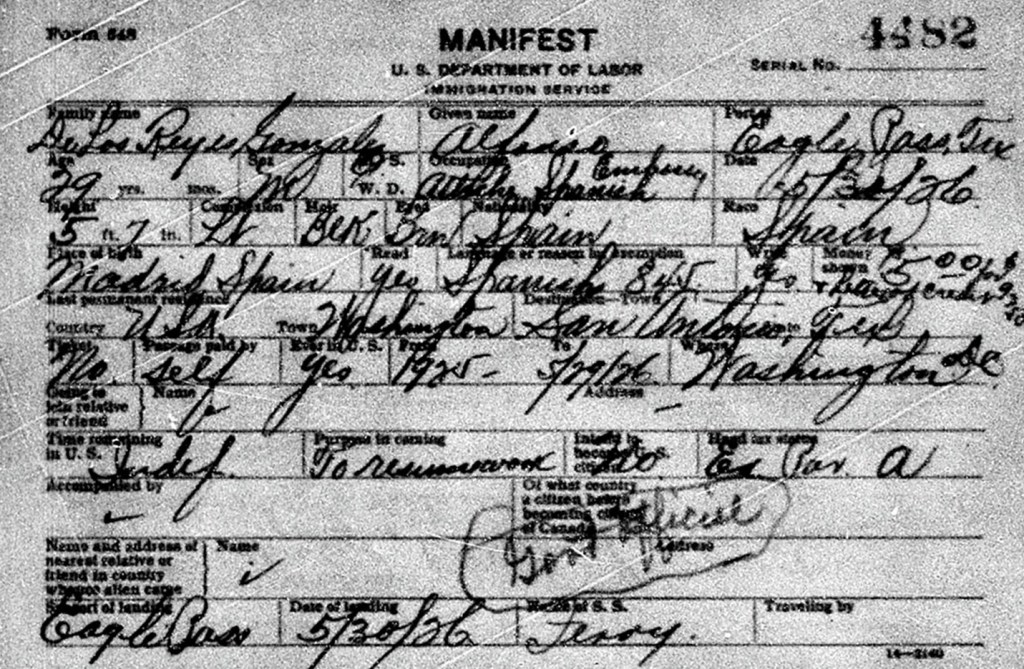 Form 548
MANIFEST
4482
U. S. DEPARTMENT OF LABOR
SERIAL NO.
IMMIGRATION SERVICE
Family name Given name Port of
De Los Reyes Gonzalez Alfonso Eagle Pass, Tex
Age Sex S. Occupation Date
29 yrs. mos. M W. D. Attache Spanish Embassy 5/30/26
Height Complexion Hair Eyes Nationality Race
5 ft. 7 in. Lt Blk Brn Spain Spain
Place of birth Read Language or reason for exemption Write Money shown
Madrid Spain yes Spanish 345 yes 500
Last permanent residence Destination—Town
Country USA Town Washington San Antonio, Tex
Ticket Passage paid by Ever in U. S. From To Where
No. self yes 1925- 5/29/26 Washington DC
Going to join relative or friend Name Address
Time remaining in U. S. Purpose in coming Intend to become U. S. citizen Head tax status
Indef. To resume work no Ex Par. A
Accompanied by Of what country a citizen before becoming citizen of Canada
Govt official
Name and address of nearest relative or friend in country whence alien came Name Address
Seaport of landing Date of landing Name of S. S. Traveling by
Eagle Pass 5/30/26 Ferry.
14—2140